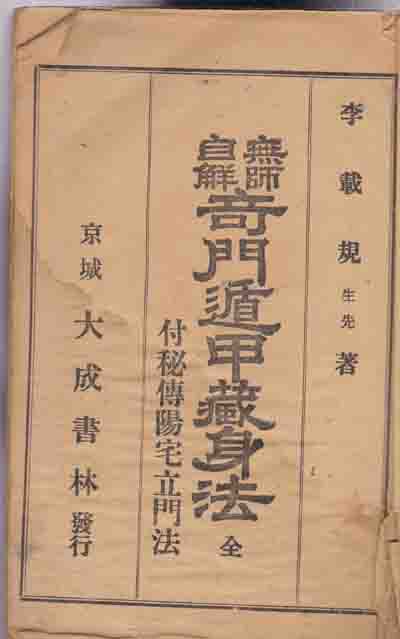 李載規先生著
無師自解
奇門遁甲藏身法 全
付秘傳陽宅立門法
京城 大成書林 發行